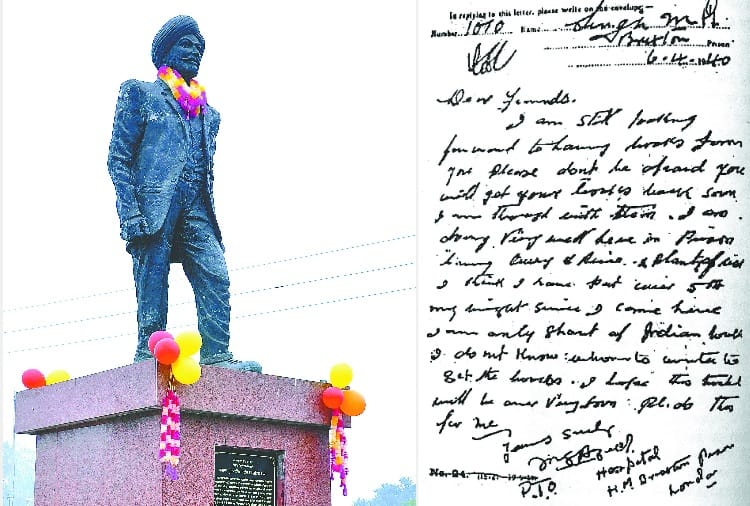 In replying to this letter, please write on the envelope:—
Number 1010 Name Singh M.
Brixton Prison
6-4-1940
Dear Friends.
I am still looking
forward to having books from
you please dont be afraid you
will get your books back soon
I am through with them. I am
doing Very well here in Prison
having Curry & Rice. & Plenty of
I think I have put over 5 lb
my weight since I came here
I am only short of Indian books
I do not know whom to write to
get the books. I hope this trouble
will be over Very soon. Pl. do this
for me
Yours
Hospital
H.M. Brixton Prison
London
No. 24.
P.T.O